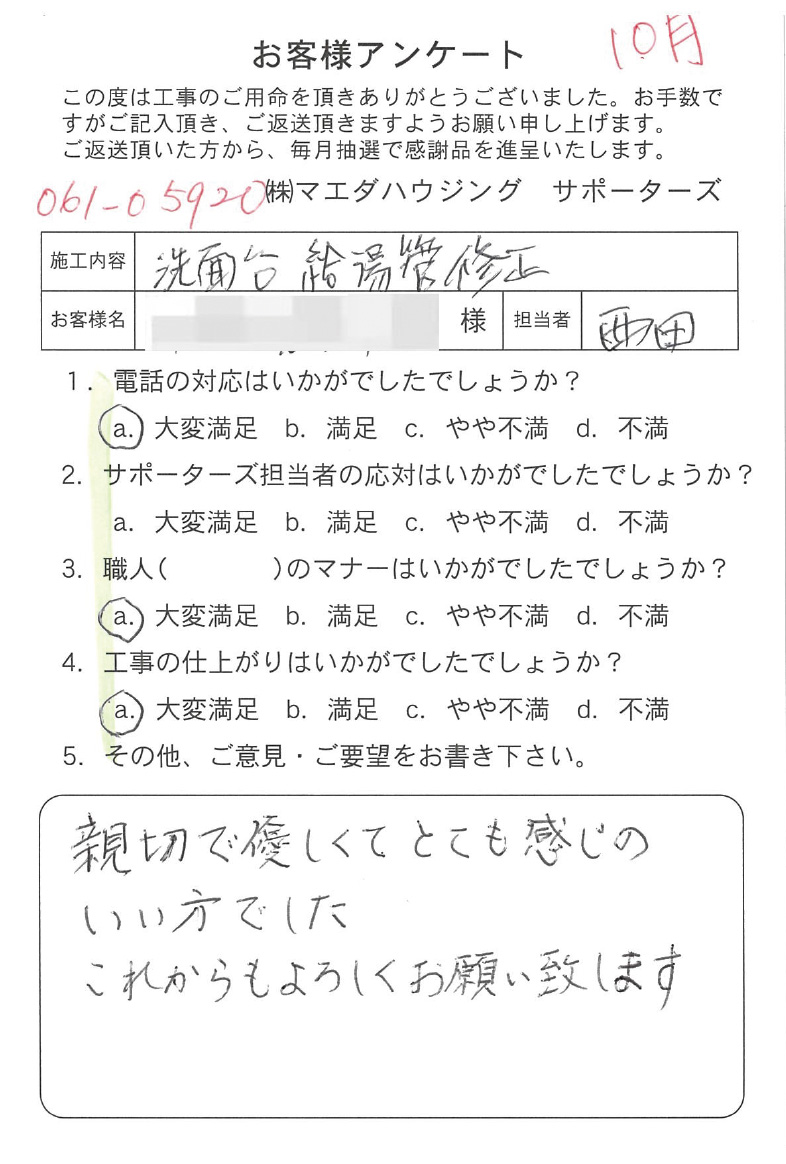 10月
お客様アンケート
この度は工事のご用命を頂きありがとうございました。お手数で
すがご記入頂き、ご返送頂きますようお願い申し上げます。
ご返送頂いた方から、毎月抽選で感謝品を進呈いたします。
061-05920 ㈱マエダハウジング サポーターズ
施工内容 洗面台 給湯管修正
お客様名 様 担当者 西田
1. 電話の対応はいかがでしたでしょうか？
a. 大変満足 b. 満足 c. やや不満 d. 不満
2. サポーターズ担当者の応対はいかがでしたでしょうか？
a. 大変満足 b. 満足 c. やや不満 d. 不満
3. 職人( )のマナーはいかがでしたでしょうか？
a. 大変満足 b. 満足 c. やや不満 d. 不満
4. 工事の仕上がりはいかがでしたでしょうか？
a. 大変満足 b. 満足 c. やや不満 d. 不満
5. その他、ご意見・ご要望をお書き下さい。
親切で優しくてとても感じの
いい方でした
これからもよろしくお願い致します